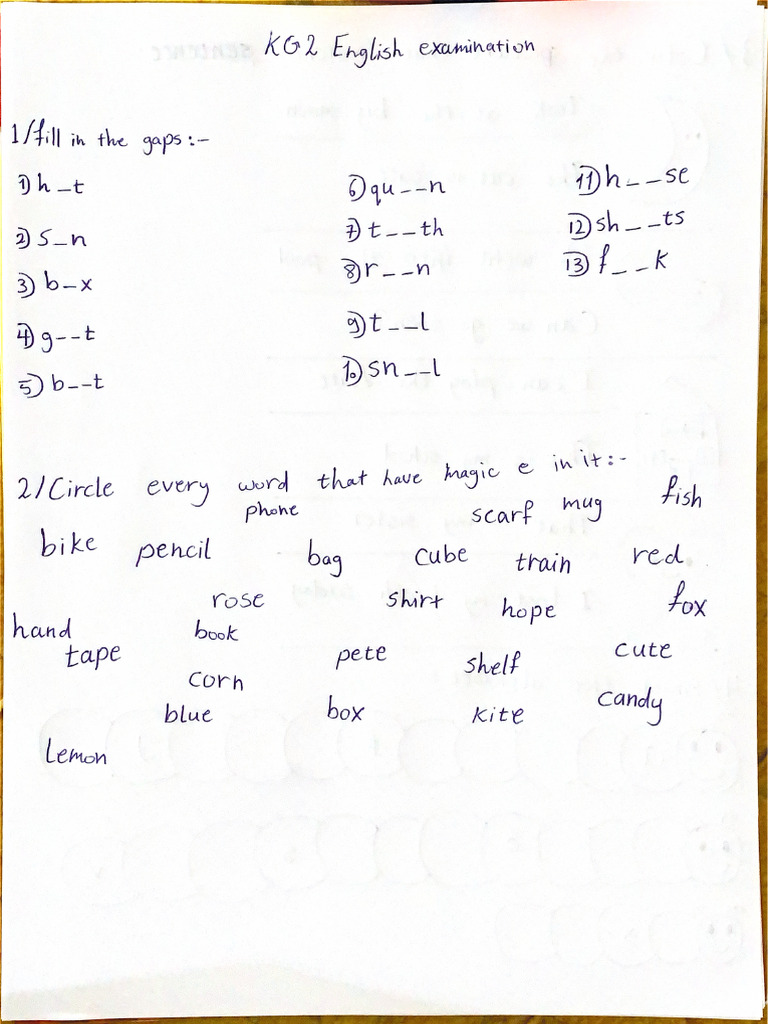 KG2 English examination
1/fill in the gaps:-
1) h_t
2) s_n
3) b_x
4) g__t
5) b__t
6) qu__n
7) t__th
8) r__n
9) t__l
10) sn__l
11) h__se
12) sh__ts
13) f__k
2/Circle every word that have magic e in it:-
phone scarf mug fish
bike pencil bag cube train red
rose shirt hope fox
hand book
tape pete shelf cute
corn
blue box kite candy
lemon